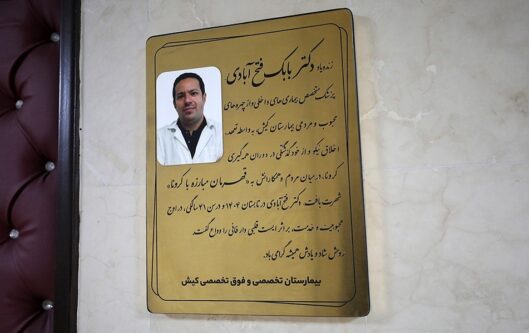 زنده‌یاد دکتر بابک فتح آبادی
پزشک متخصص بیماری‌های داخلی و از چهره‌های
محبوب و مردمی بیمارستان کیش، به واسطه تعهد،
اخلاق نیکو و از خودگذشتگی در دوران همه‌گیری
کرونا، در میان مردم و همکارانش به «قهرمان مبارزه با کرونا»
شهرت یافت. دکتر فتح آبادی در تابستان ۱۴۰۴ و در سن ۴۱ سالگی، در اوج
محبوبیت و خدمت، بر اثر ایست قلبی دار فانی را وداع گفت.
روحش شاد و یادش همیشه گرامی باد.
بیمارستان تخصصی و فوق تخصصی کیش